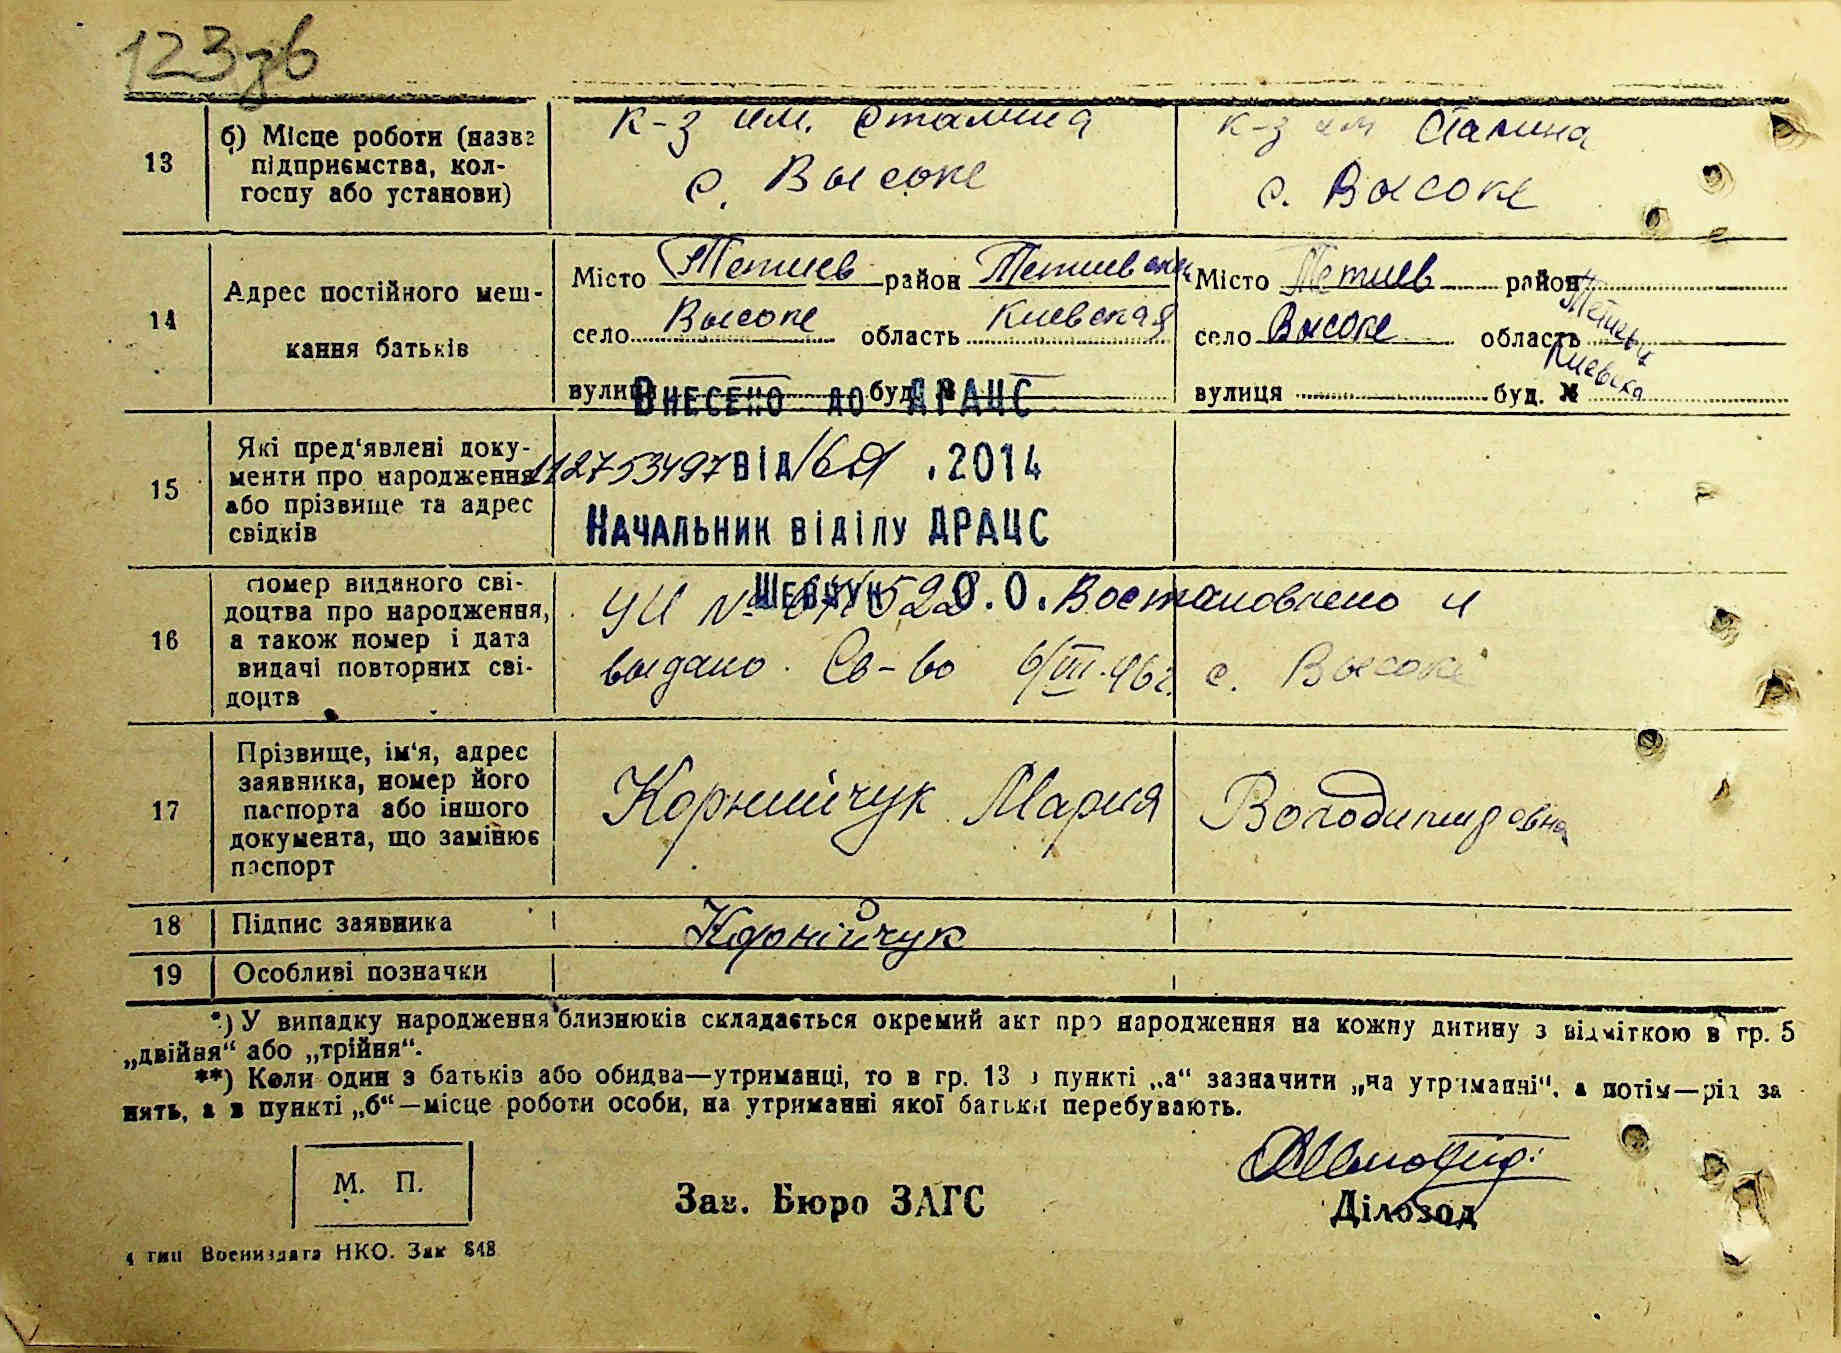 123 зв
13
б) Місце роботи (назва підприємства, колгоспу або установи)
к-з им. Сталина
с. Высоке
к-з им Сталина
с. Высоке
14
Адрес постійного меш-
кання батьків
Місто Тетиев район Тетиевский
село Высоке область Киевская
вулиця буд. №
Місто Тетиев район Тетиевск
село Высоке область Киевска
вулиця буд. №
Внесено до ДРАЦС
15
Які пред'явлені доку-
менти про народження
або прізвище та адрес
свідків
112753497 від 16 .2014
Начальник відділу ДРАЦС
Шевчук О.О.
16
Номер виданого сві-
доцтва про народження,
а також номер і дата
видачі повторних сві-
доцтв
УИ № Востановлено и
выдано Св-во 6/III-46г. с. Высоке
17
Прізвище, ім'я, адрес
заявника, номер його
паспорта або іншого
документа, що замінює
паспорт
Корнийчук Мария Володимировна
18
Підпис заявника
Корнійчук
19
Особливі позначки
*) У випадку народження близнюків складається окремий акт про народження на кожну дитину з відміткою в гр. 5
„двійня“ або „трійня“.
**) Коли один з батьків або обидва—утриманці, то в гр. 13 в пункті „а“ зазначити „на утриманні“, а потім—рід за
нять, а в пункті „б“—місце роботи особи, на утриманні якої батьки перебувають.
М. П.
Зав. Бюро ЗАГС
Діловод
4 тип Воениздата НКО. Зак 848